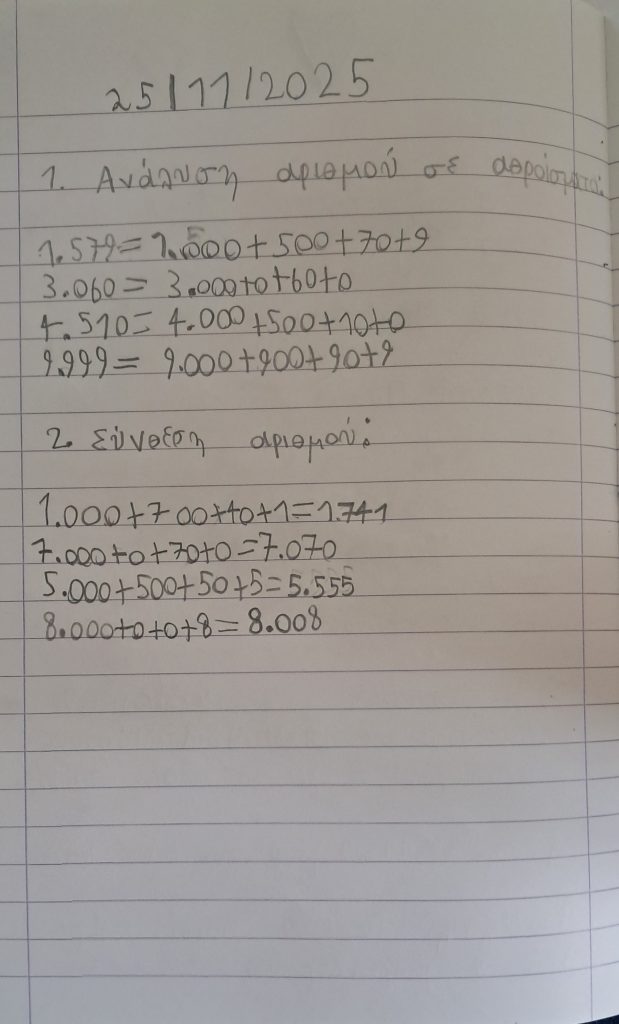 25/11/2025
1. Ανάλυση αριθμού σε αθροίσματα:
1.579=1.000+500+70+9
3.060= 3.000+0+60+0
4.510= 4.000+500+10+0
9.999= 9.000+900+90+9
2. Σύνθεση αριθμού:
1.000+700+40+1=1.741
7.000+0+70+0=7.070
5.000+500+50+5=5.555
8.000+0+0+8=8.008